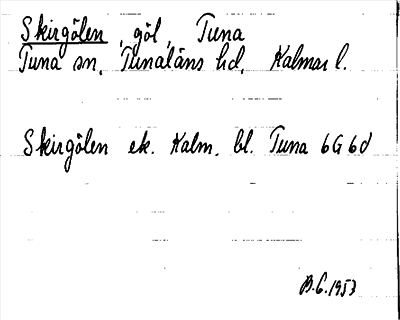 Skirgölen, göl, Tuna
Tuna sn. Tunaläns hd. Kalmar l.
Skirgölen ek. Kalm. bl. Tuna 6G6d
B.G. 1953